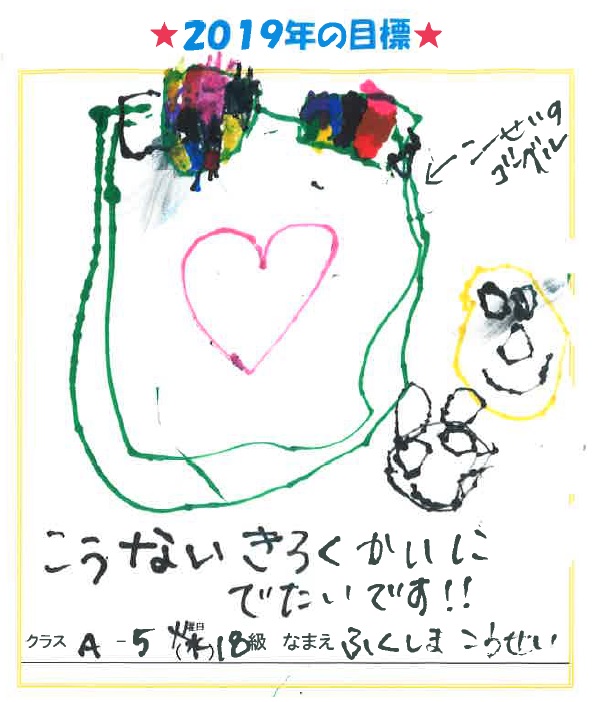 ★2019年の目標★
こーせいの
ゴーグル
こうないきろくかいに
でたいです!!
クラス A-5 火曜日(水) 18級 なまえ ふくしま こうせい